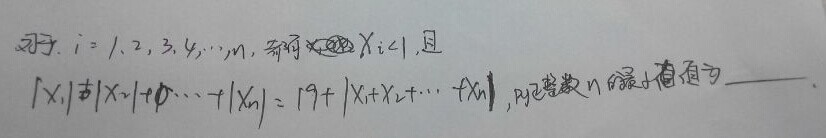 对于 i=1、2、3、4,…,n, 都有 Xi<1, 且
|X₁|+|X₂|+…+|Xn|=19+|X₁+X₂+…+Xn|, 则正整数 n 的最小值为____.